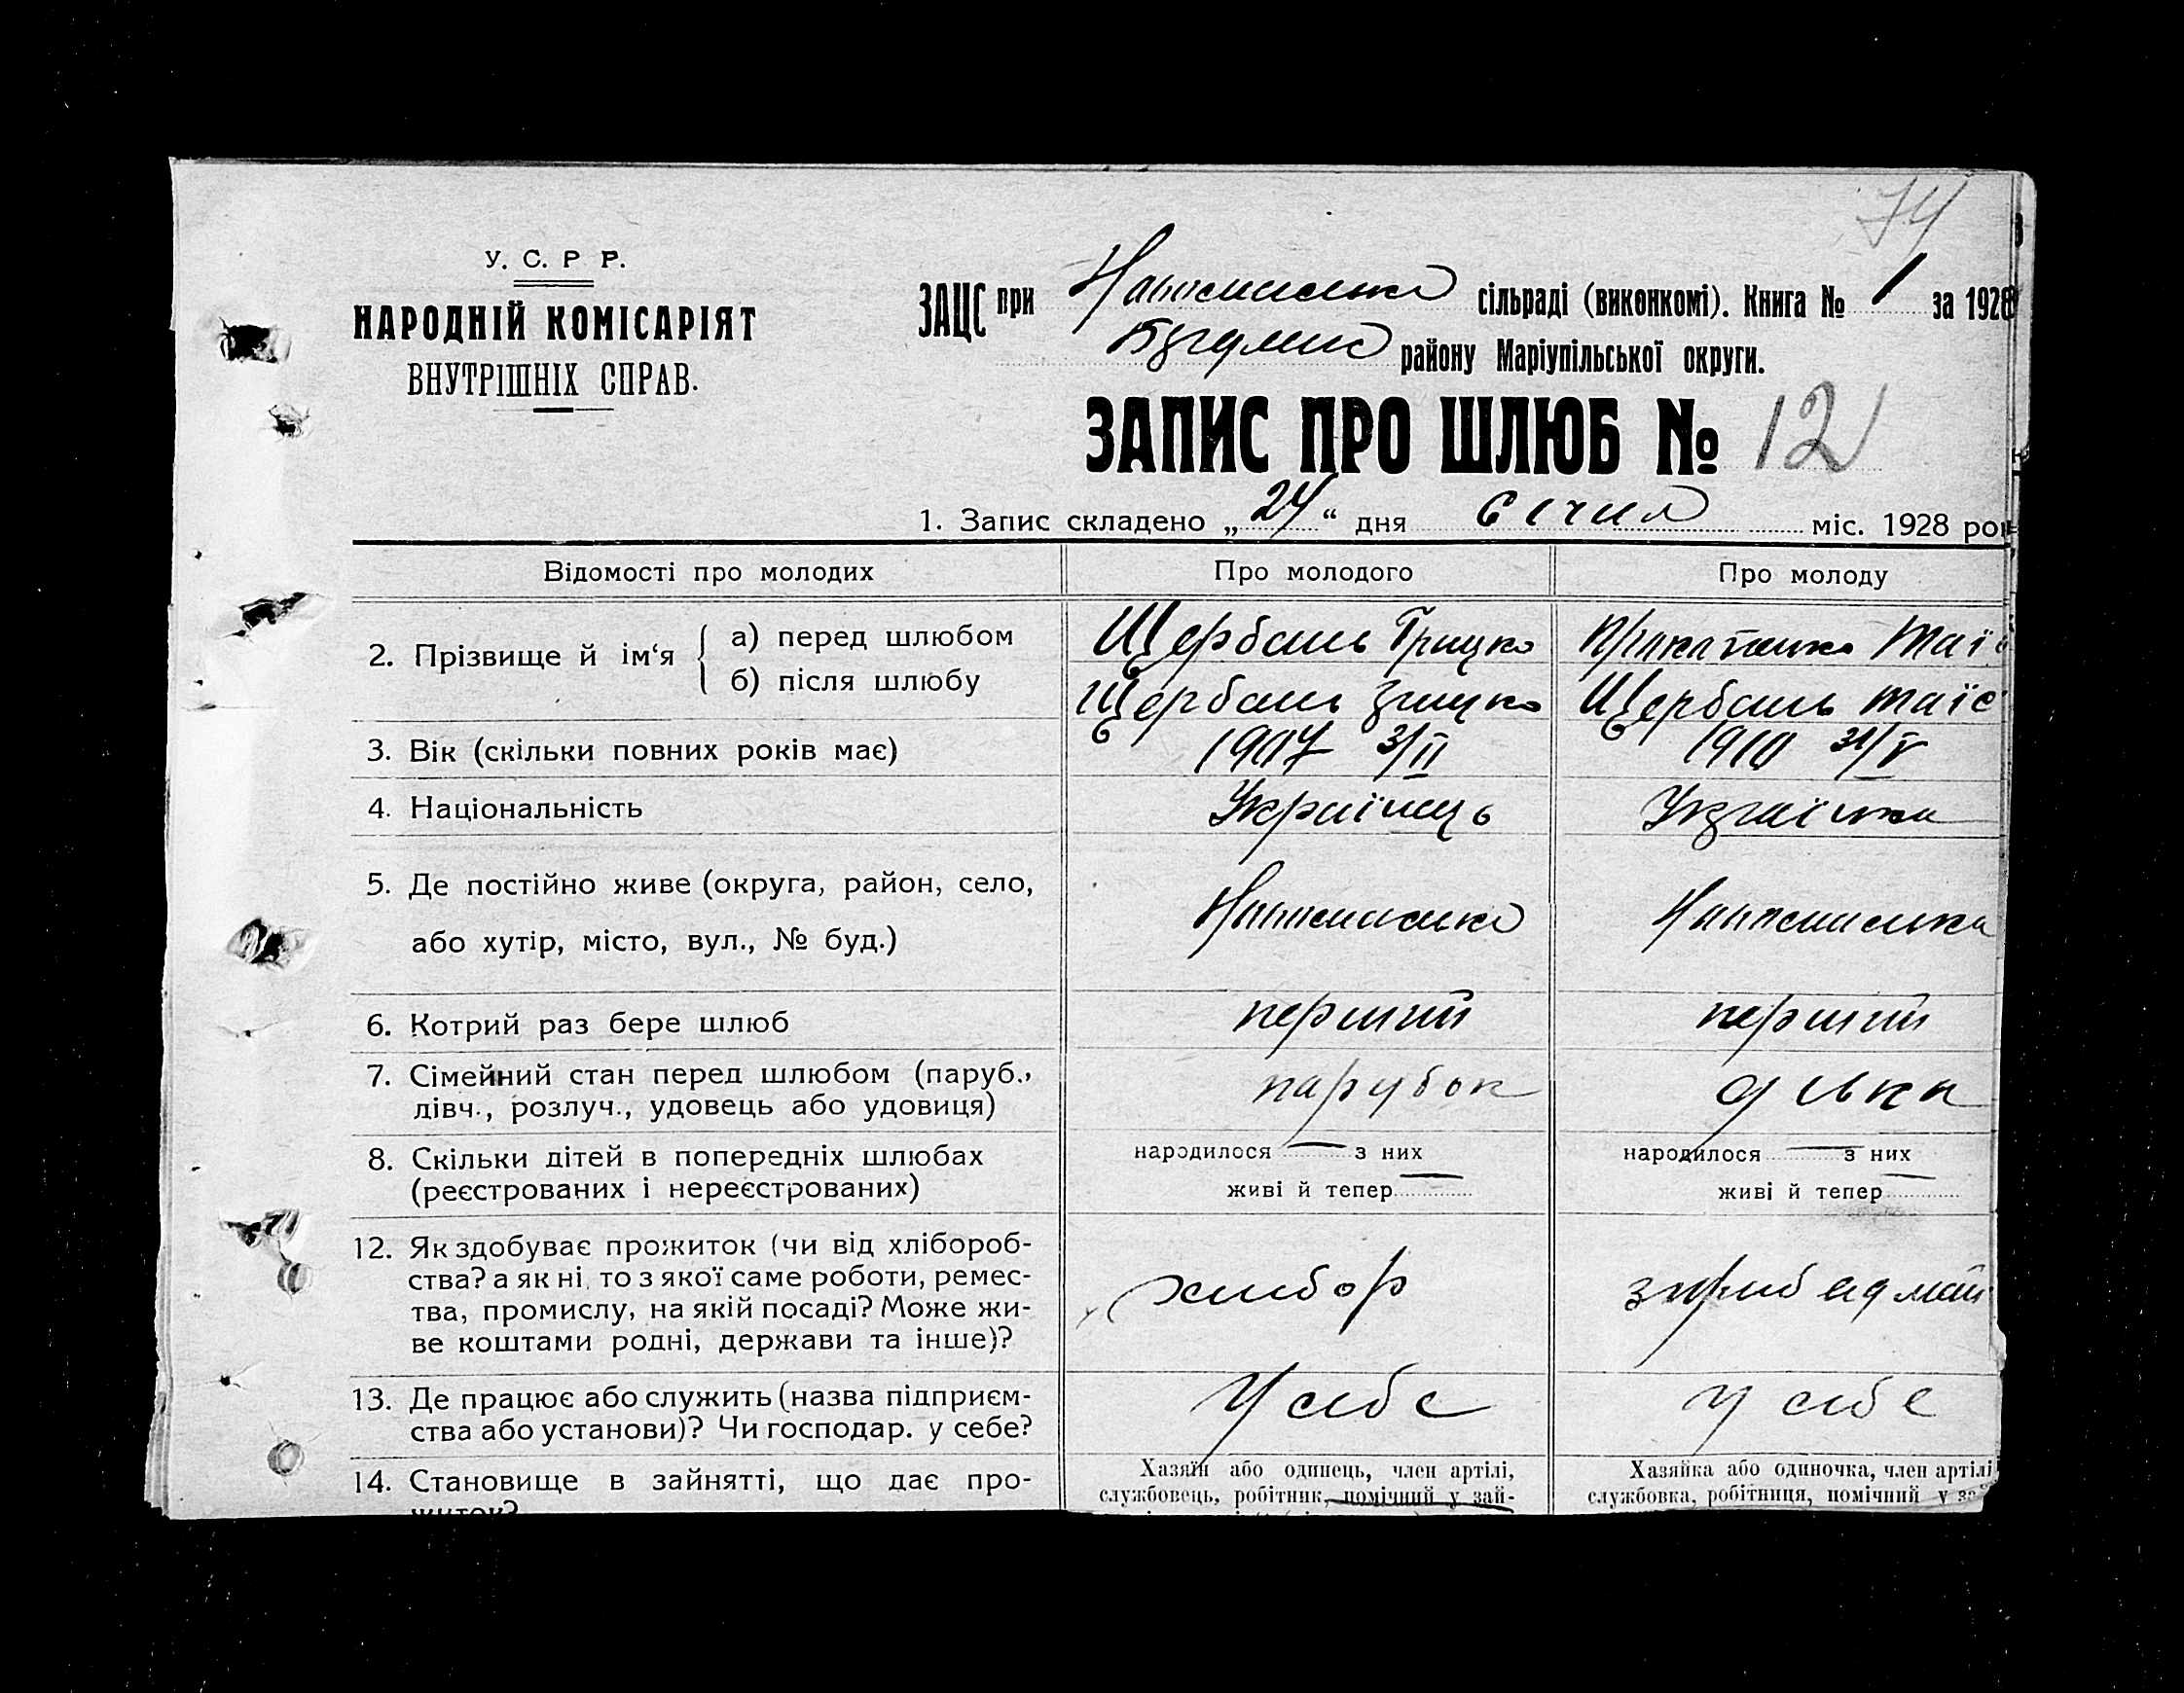 74
У. С. Р Р.
НАРОДНІЙ КОМІСАРІЯТ
ВНУТРІШНІХ СПРАВ.
ЗАЦС при сільраді (виконкомі). Книга № 1 за 1928
району Маріупільської округи.
ЗАПИС ПРО ШЛЮБ № 12
1. Запис складено „24“ дня Січня міс. 1928 рок
Відомості про молодих Про молодого Про молоду
2. Прізвище й ім‘я а) перед шлюбом Щербань Грицко Таїс
б) після шлюбу Щербань Грицко Щербань Таїс
3. Вік (скільки повних років має) 1907 3/II 1910 31/V
4. Національність Українець Українка
5. Де постійно живе (округа, район, село,
або хутір, місто, вул., № буд.)
6. Котрий раз бере шлюб перший перший
7. Сімейний стан перед шлюбом (паруб.,
дівч., розлуч., удовець або удовиця) парубок дівка
8. Скільки дітей в попередніх шлюбах народилося — з них народилося — з них
(реєстрованих і нереєстрованих) живі й тепер — живі й тепер —
12. Як здобуває прожиток (чи від хлібороб-
ства? а як ні, то з якої саме роботи, ремес-
тва, промислу, на якій посаді? Може жи-
ве коштами родні, держави та інше)? хлібор
13. Де працює або служить (назва підприєм-
ства або установи)? Чи господар. у себе? У себе у себе
14. Становище в зайнятті, що дає про-
житок?
Хазяїн або одинець, член артілі, Хазяйка або одиночка, член артілі
службовець, робітник, помічний у зай- службовка, робітниця, помічний у за